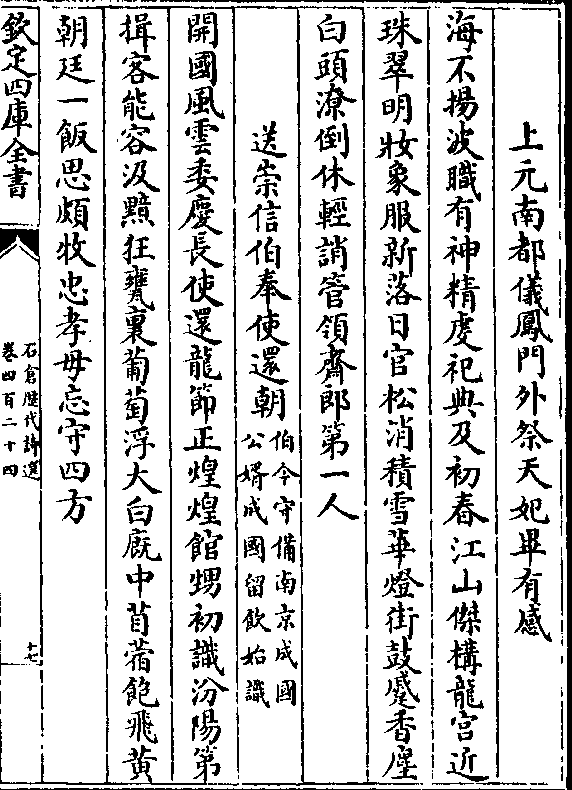 上元南都儀鳳門外祭天妃畢有感
海不揚波職有神精虔祀典及初春江山傑構龍宮近
珠翠明妝象服新落日官松消積雪華燈街鼓蹙香塵
白頭潦倒休輕誚管領齋郎第一人
送崇信伯奉使還朝伯今守備南京成國
公婿成國留飲始識
開國風雲委慶長使還龍節正煌煌館甥初識汾陽第
揖客能容汲黯狂甕裏葡萄浮大白廐中苜蓿飽飛黃
朝廷一飯思頗牧忠孝毋忘守四方
欽定四庫全書
石倉歷代詩選
卷四百二十四
十七